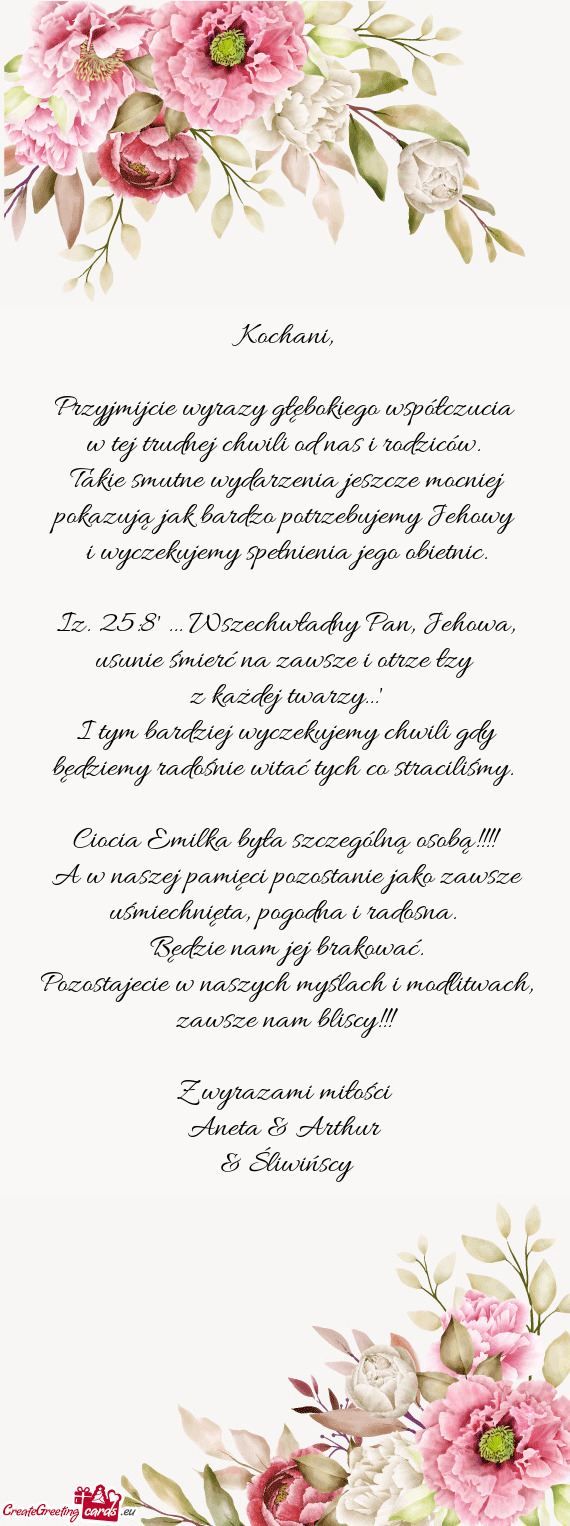 Kochani,
Przyjmijcie wyrazy głębokiego współczucia
w tej trudnej chwili od nas i rodziców.
Takie smutne wydarzenia jeszcze mocniej
pokazują jak bardzo potrzebujemy Jehowy
i wyczekujemy spełnienia jego obietnic.
Iz. 25:8' ... Wszechwładny Pan, Jehowa,
usunie śmierć na zawsze i otrze łzy
z każdej twarzy...'
I tym bardziej wyczekujemy chwili gdy
będziemy radośnie witać tych co straciliśmy.
Ciocia Emilka była szczególną osobą!!!!
A w naszej pamięci pozostanie jako zawsze
uśmiechnięta, pogodna i radosna.
Będzie nam jej brakować.
Pozostajecie w naszych myślach i modlitwach,
zawsze nam bliscy!!!
Z wyrazami miłości
Aneta & Arthur
& Śliwińscy
CreateGreeting cards .eu